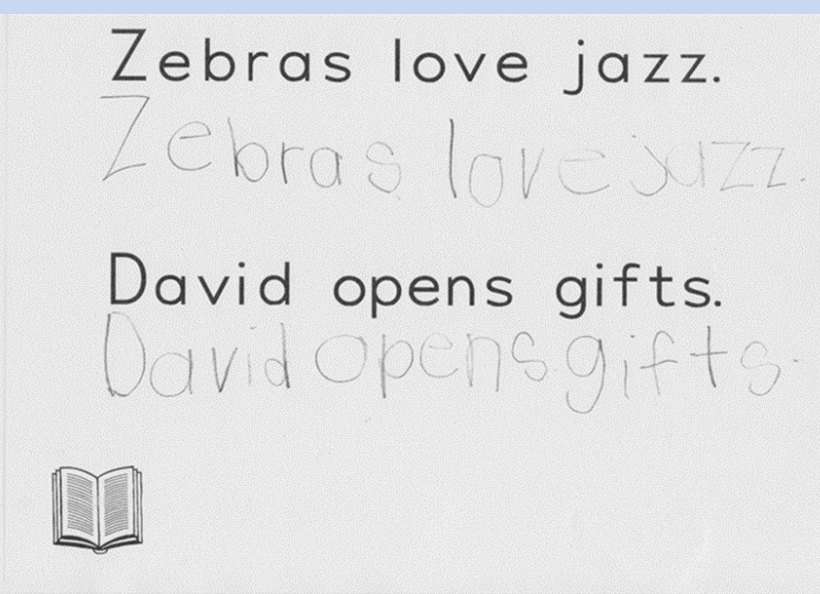 Zebras love jazz.
Zebras love jazz.
David opens gifts.
David opens gifts.